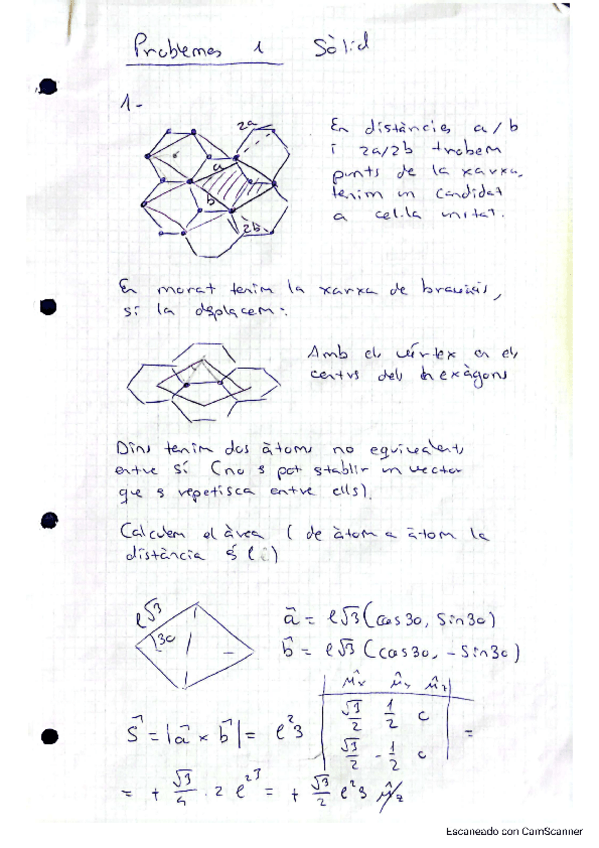 Problemes 1 Sòlid
1-
2a
a
b
2b
En distàncies a/b
i 2a/2b trobem
punts de la xarxa,
tenim un candidat
a cel·la unitat.
En morat tenim la xarxa de bravais,
si la desplacem:
Amb el vèrtex en els
centres dels hexàgons
Dins tenim dos àtoms no equivalents
entre sí (no s pot establir un vector
que s repetisca entre ells).
Calculem el àrea ( de àtom a àtom la
distància és l )
l√3
30
â = l√3 (cos30, sin30)
b̂ = l√3 (cos30, -sin30)
S⃗ = |a⃗ × b⃗| = l²3
μ̂x μ̂y μ̂z
√3/2 1/2 0
√3/2 -1/2 0
=
= + √3/4 · 2 l²3 = + √3/2 l²3 μ̂z
Escaneado con CamScanner